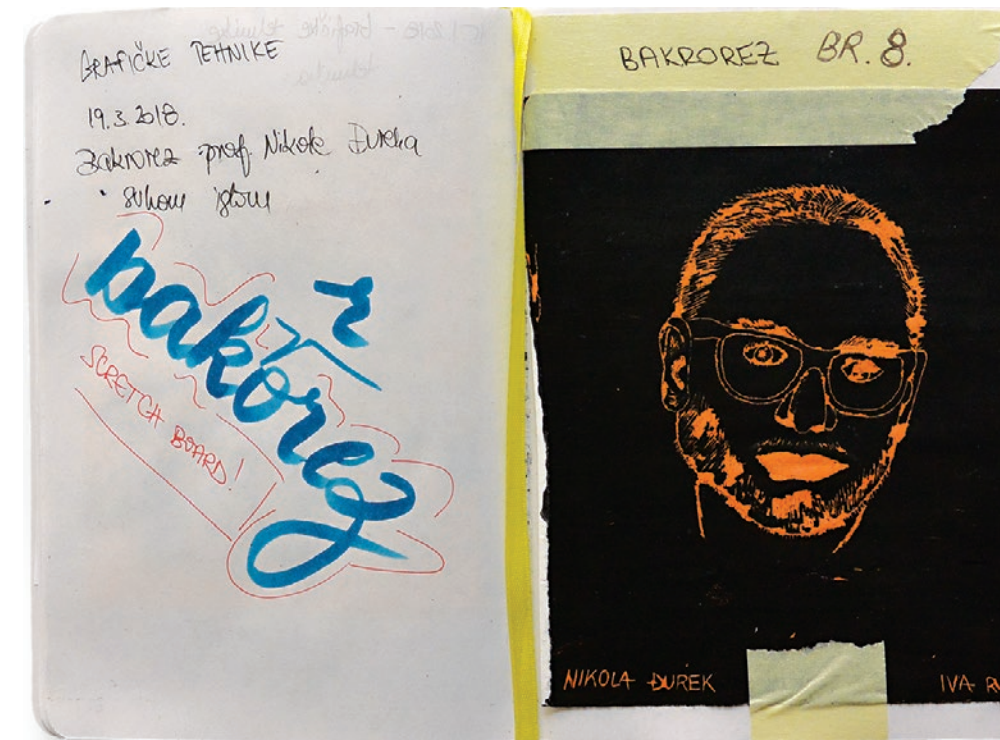 GRAFIČKE TEHNIKE
19.3.2018.
Bakrorez prof. Nikole Đureka
• suhom iglom
bakorez
r
SCRETCH BOARD!
BAKROREZ BR. 8.
NIKOLA ĐUREK
IVA